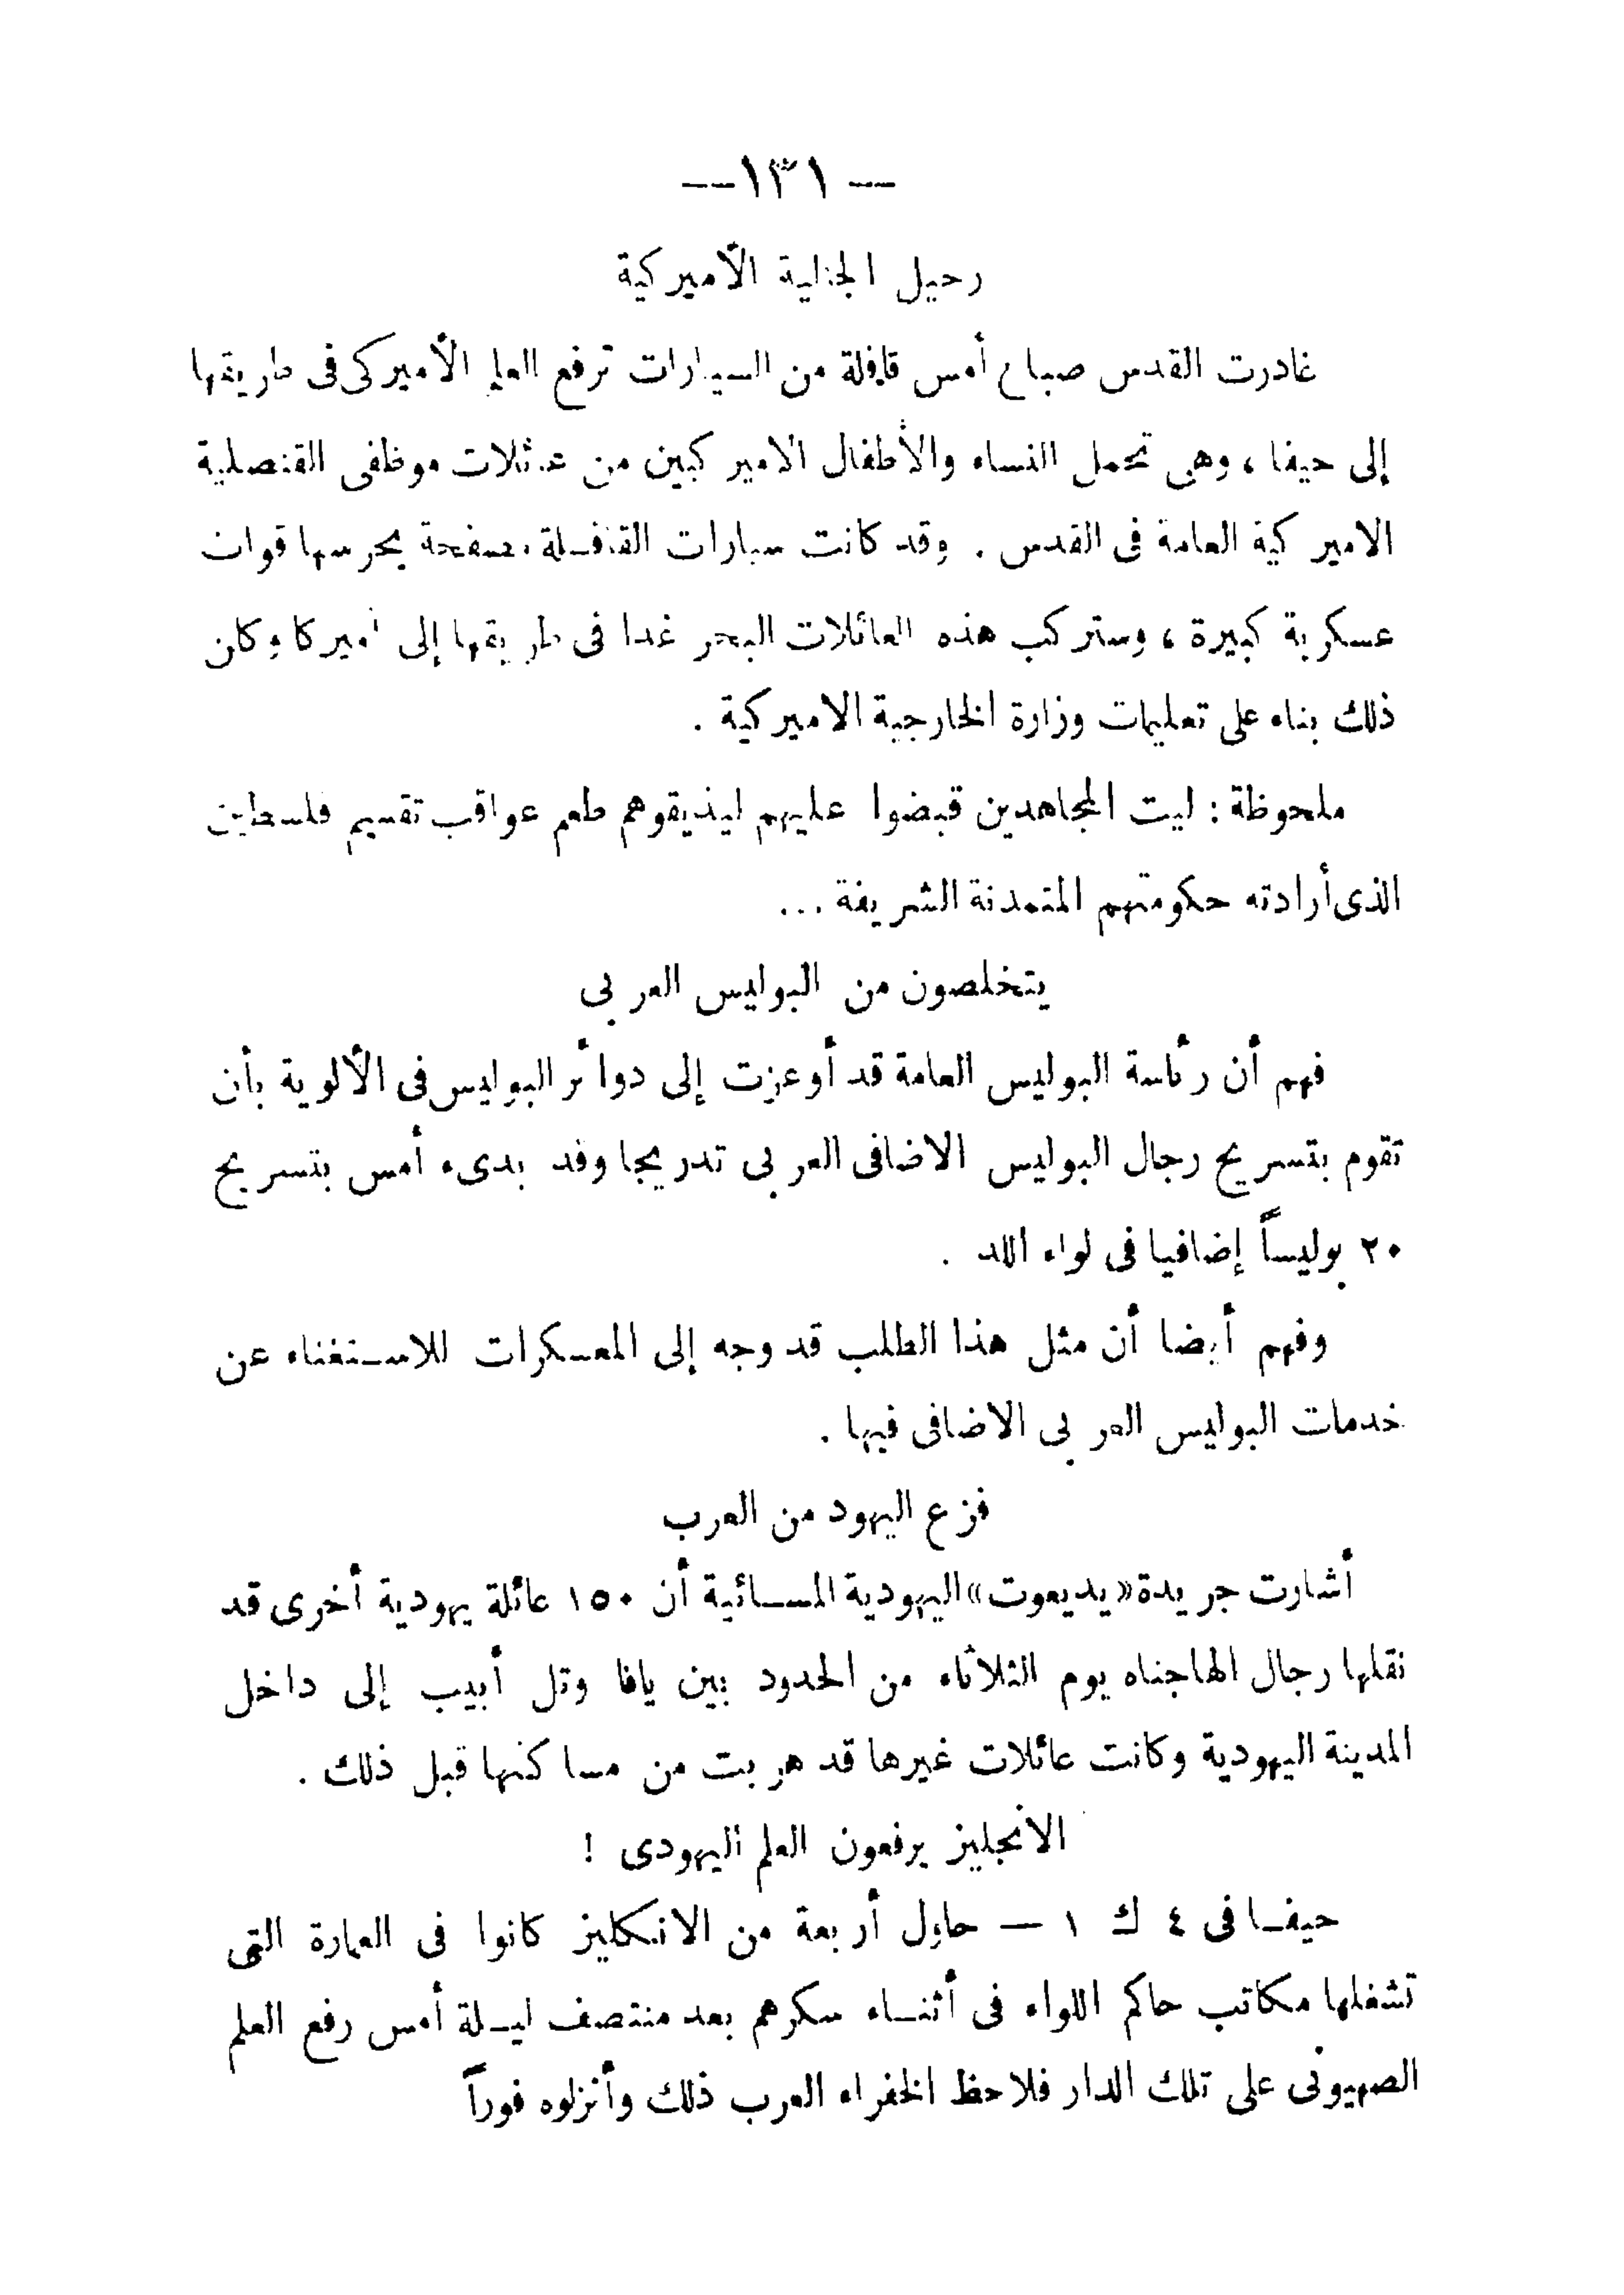 — ١٣١ —
رحيل الجالية الأميركية
غادرت القدس صباح أمس قافلة من السيارات ترفع العلم الأميركى فى طريقها
إلى حيفا ، وهى تحمل النساء والأطفال الاميركيين من عائلات موظفى القنصلية
الاميركية العامة فى القدس . وقد كانت سيارات القافـلة مصفحة يحرسها قوات
عسكرية كبيرة ، وستركب هذه العائلات البحر غدا فى طريقها إلى أميركا وكان
ذلك بناء على تعليمات وزارة الخارجية الاميركية .
ملحوظة : ليت المجاهدين قبضوا عليهم ليذيقوهم طعم عواقب تقسيم فلسطين
الذى أرادته حكومتهم المتمدنة الشريفة ...
يتخلصون من البوليس العربى
فهم أن رئاسة البوليس العامة قد أوعزت إلى دوائر البوليس فى الألوية بأن
تقوم بتسريح رجال البوليس الاضافى العربى تدريجا وقد بدىء أمس بتسريح
٢٠ بوليساً إضافيا فى لواء اللد .
وفهم أيضا أن مثل هذا الطلب قد وجه إلى المعسكرات للاسـتغناء عن
خدمات البوليس العربى الاضافى فيها .
فزع اليهود من العرب
أشارت جريدة «يديعوت» اليهودية المسـائية أن ١٥٠ عائلة يهودية أخرى قد
نقلها رجال الهاجناه يوم الثلاثاء من الحدود بين يافا وتل أبيب إلى داخل
المدينة اليهودية وكانت عائلات غيرها قد هربت من مساكنها قبل ذلك .
الانجليز يرفعون العلم اليهودى !
حيفـا فى ٤ ك ١ — حاول أربعة من الانكليز كانوا فى العمارة التى
تشغلها مكاتب حاكم اللواء فى أثنـاء سكرهم بعد منتصف ليـلة أمس رفع العلم
الصهيونى على تلك الدار فلاحظ الخفراء العرب ذلك وأنزلوه فوراً